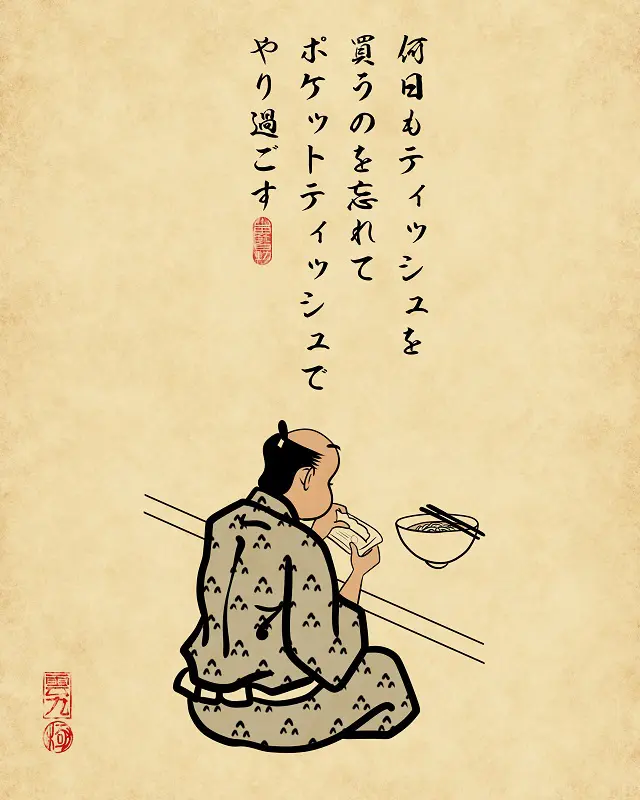 何日もティッシュを
買うのを忘れて
ポケットティッシュで
やり過ごす